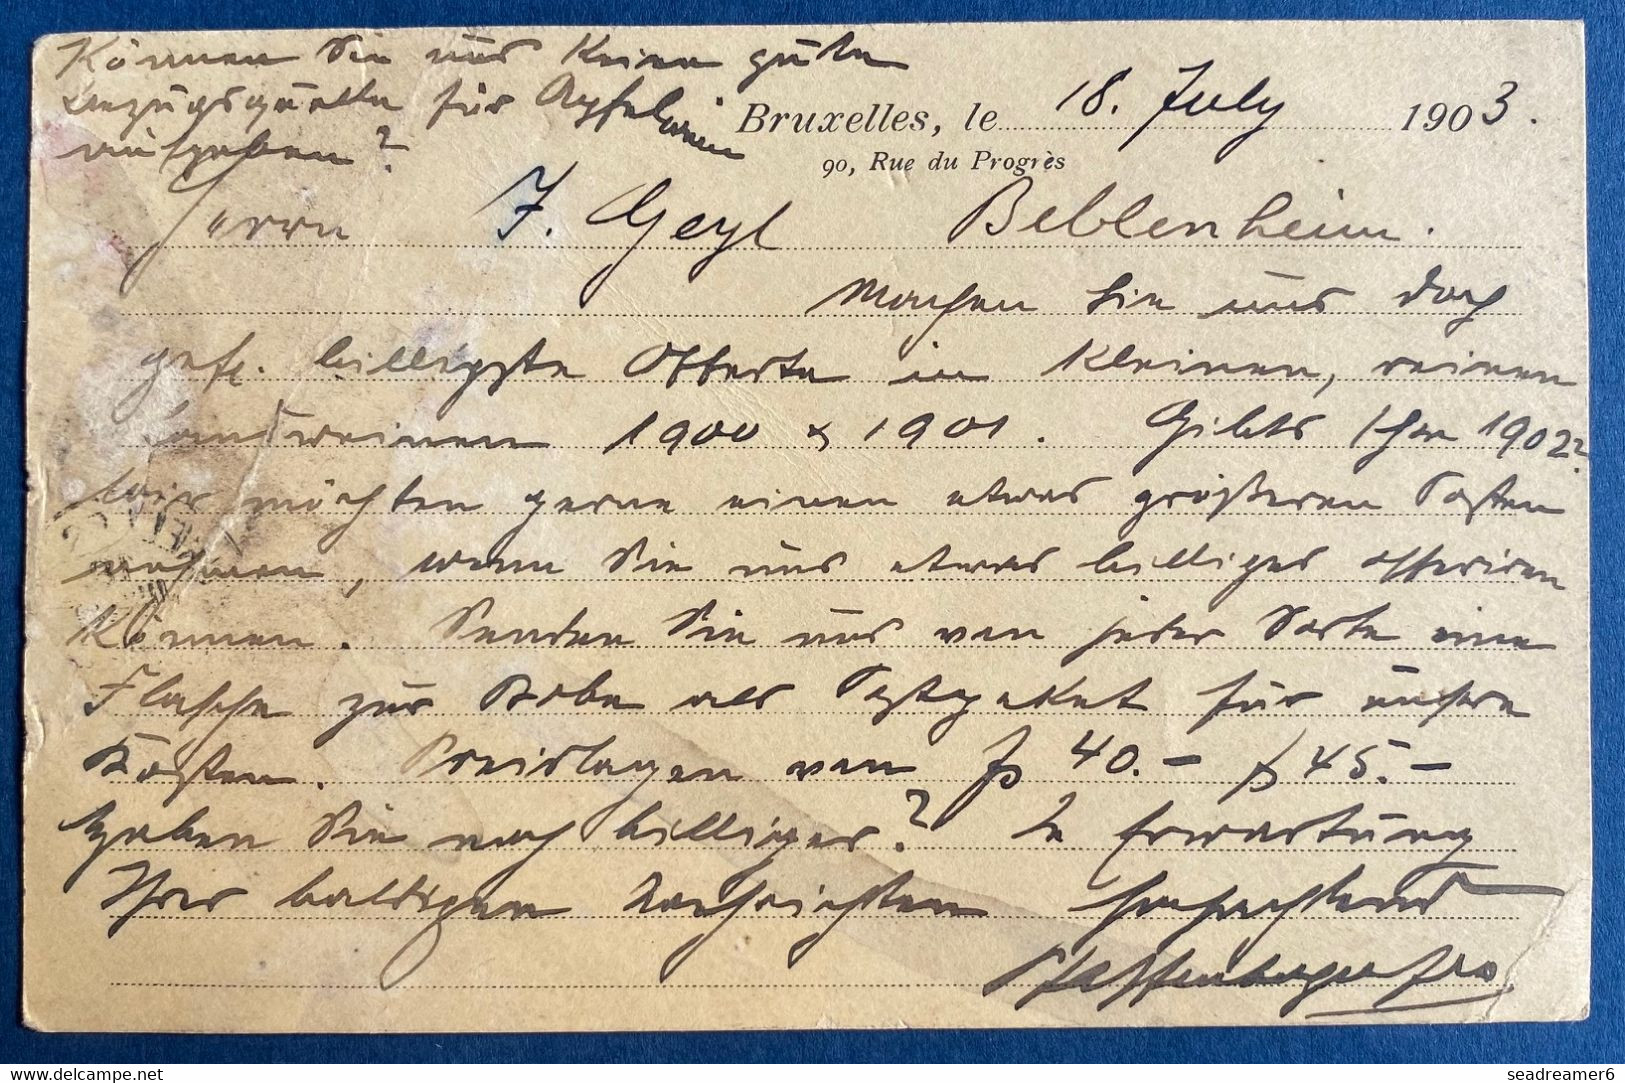 Können Sie uns keine gute
Bezugsquelle für Apfelwein
aufgeben?
Bruxelles, le 18. July 1903.
90, Rue du Progrès
Herrn J. Geyl Beblenheim.
Machen Sie uns doch
gefl. billigste Offerte in kleinen, reinen
Landweinen 1900 & 1901. Gibts schon 1902?
Wir möchten gerne einen etwas größeren Posten
nehmen, wenn Sie uns etwas billiges offeriren
können. Senden Sie uns von jeder Sorte eine
Flasche zur Probe als Postpaket für unsere
Kosten. Preislagen von 40.- 45.-
Haben Sie noch billiger? In Erwartung
Ihrer baldigen Nachrichten hochachtend
seadreamer6
delcampe.net